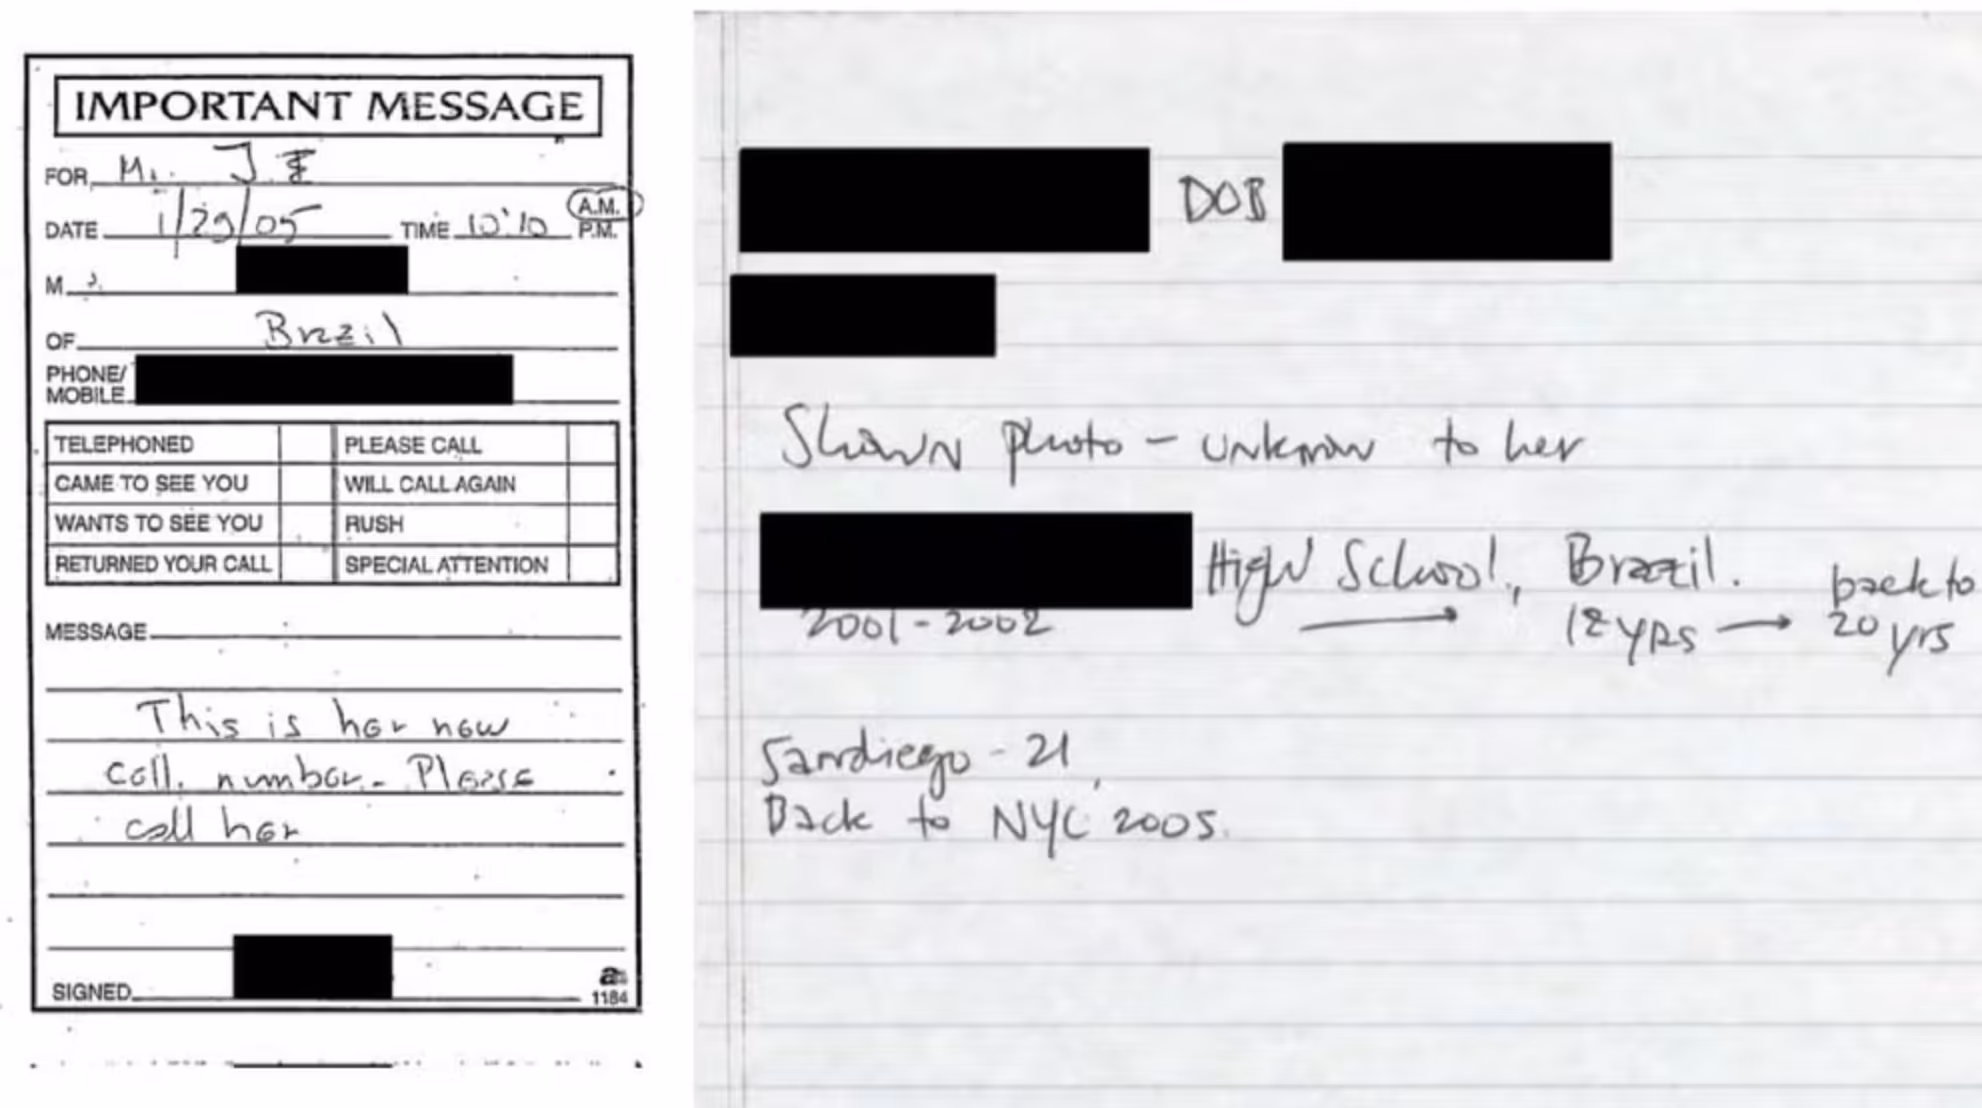 IMPORTANT MESSAGE
FOR Mr. J E
DATE 1/29/05 TIME 10:10 A.M.
P.M.
M s.
OF Brazil
PHONE/
MOBILE
TELEPHONED PLEASE CALL
CAME TO SEE YOU WILL CALL AGAIN
WANTS TO SEE YOU RUSH
RETURNED YOUR CALL SPECIAL ATTENTION
MESSAGE
This is her new
cell. number. Please
call her
SIGNED
1184
DOB
Shown photo - unknown to her
High School, Brazil. back to
2001-2002 → 12 yrs → 20 yrs
Sandiego - 21
Back to NYC 2005.